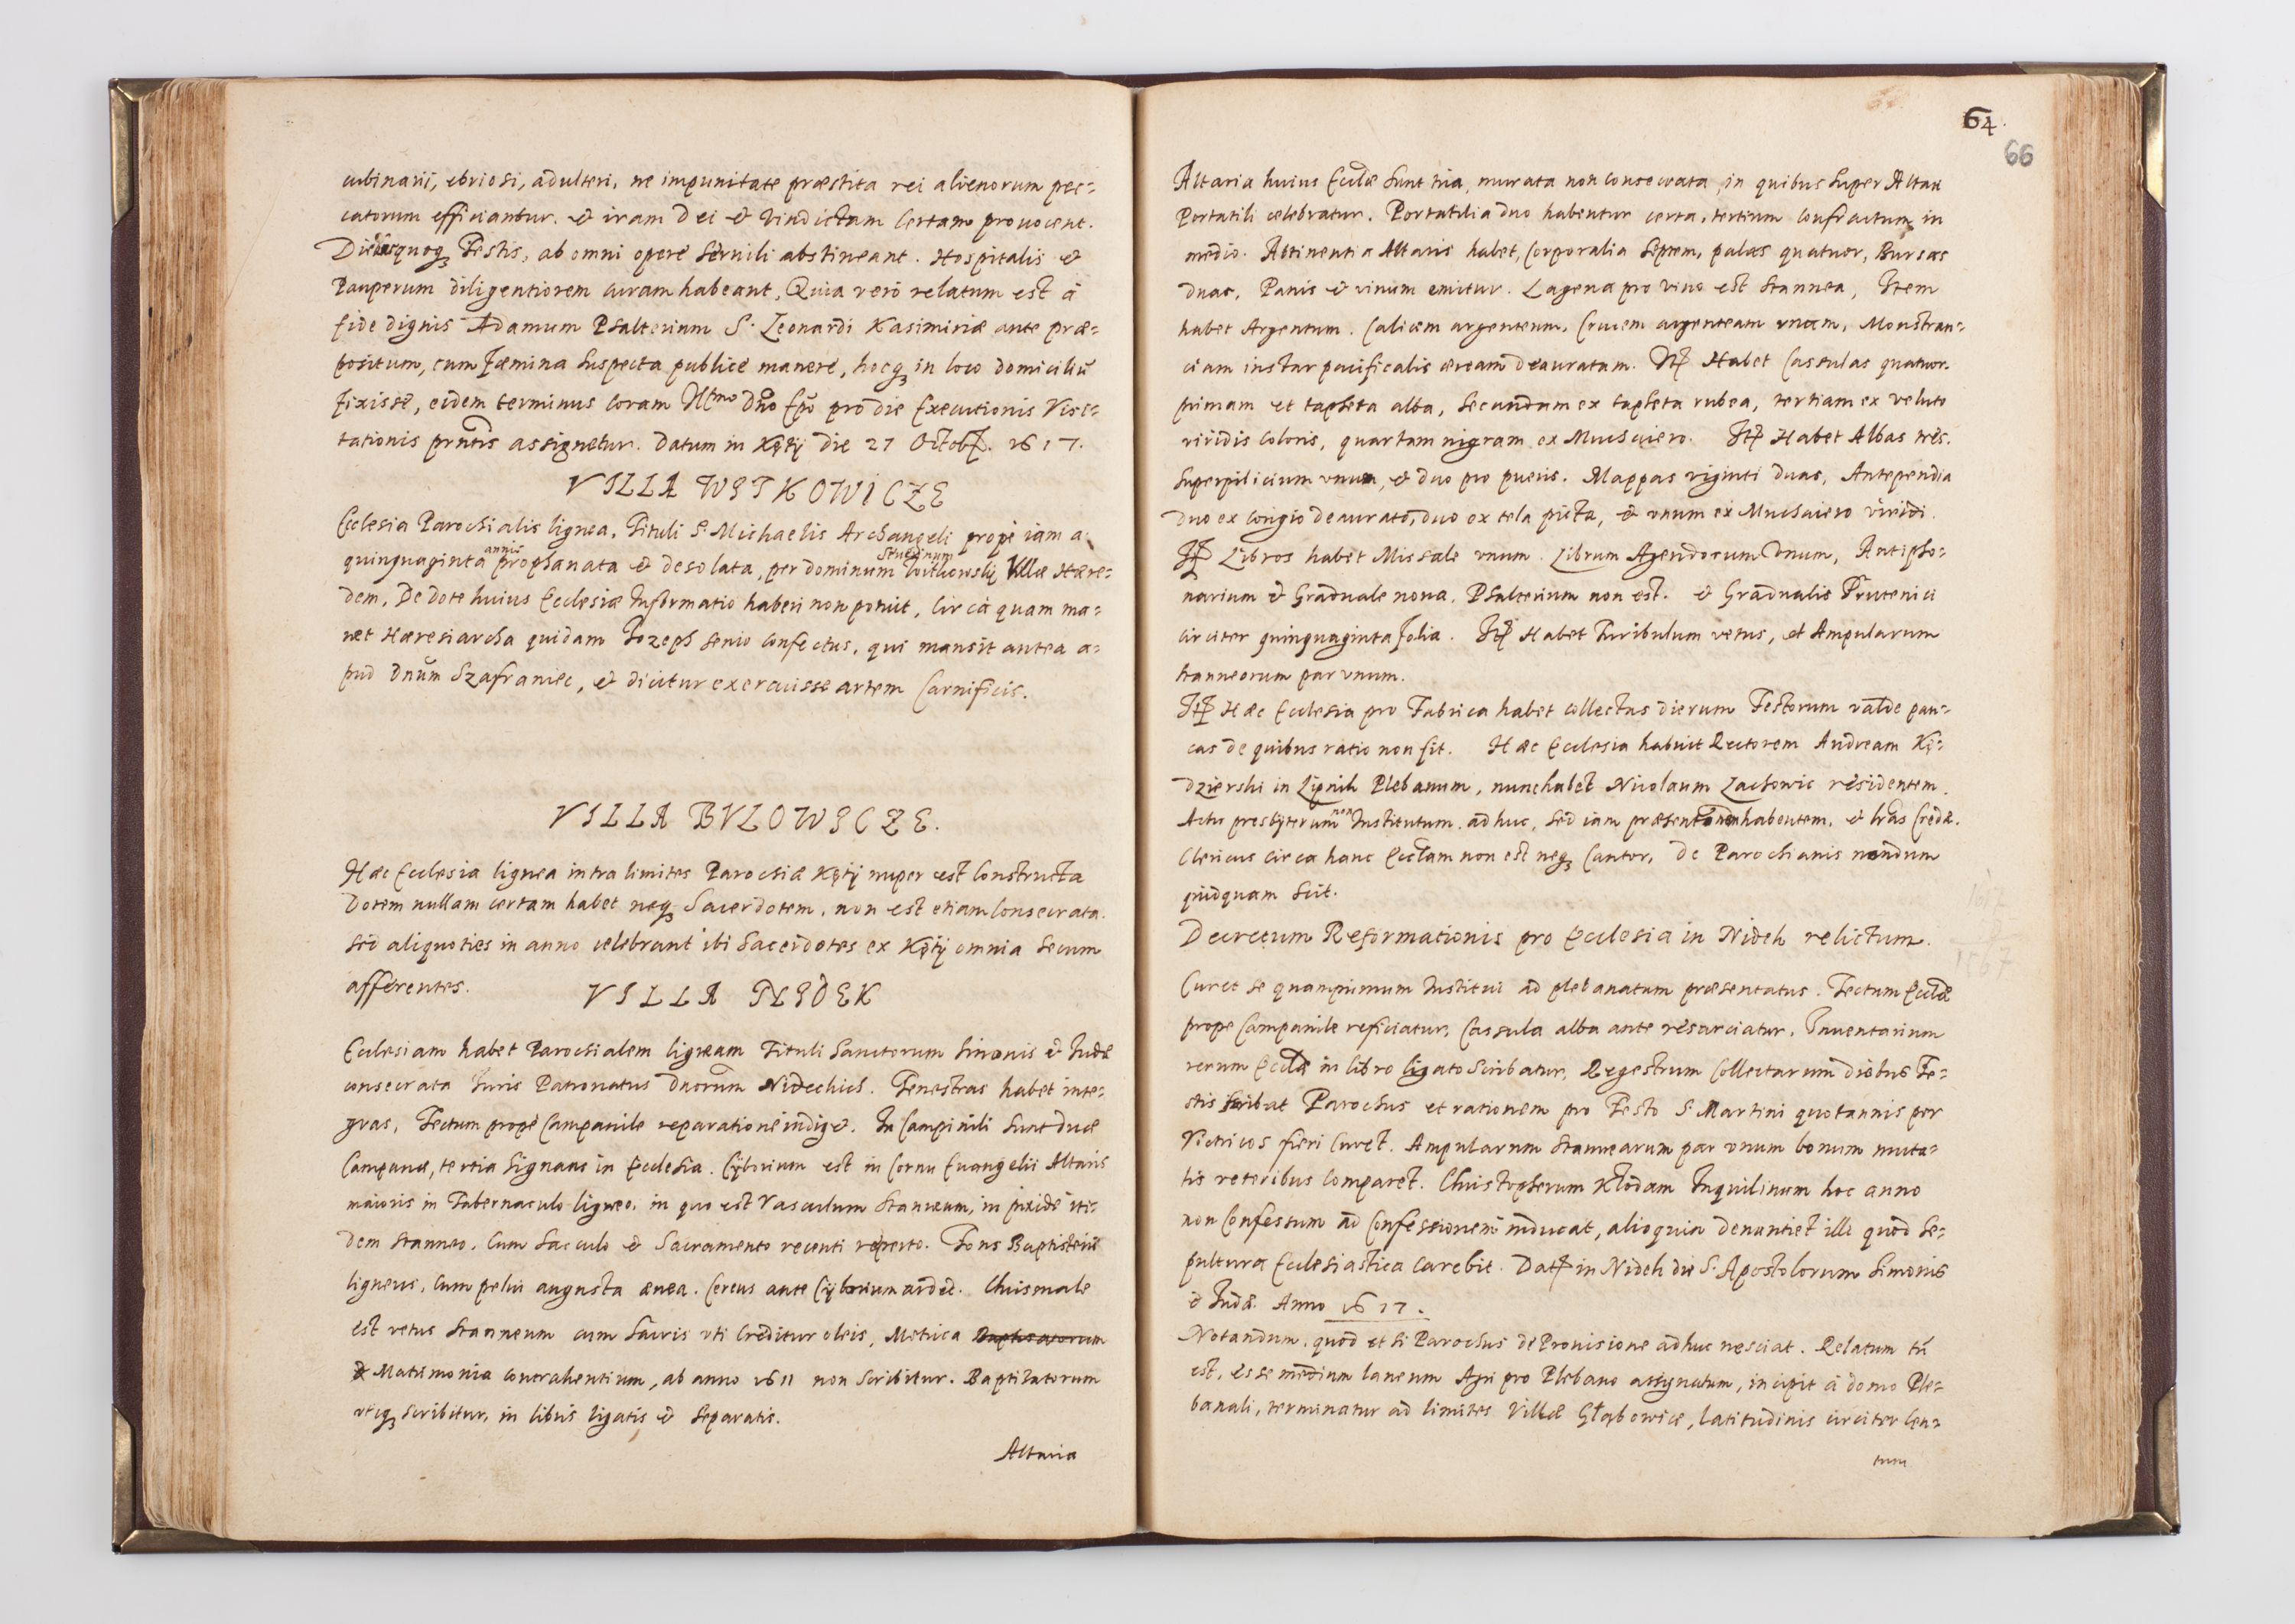 cubinarii, ebriosi, adulteri, ne impunitate præstita rei alienorum pec=
catorum efficiantur. & iram Dei & Vindictam Certam prouocent.
quoq Festis, ab omni opere Seruili abstineant. Hospitalis &
Pauperum diligentiorem curam habeant, Quia vero relatum est á
fide dignis Adamum Psalterium S. Leonardi Kasimiriæ ante præ=
positum, cum fæmina suspecta publice manere, hocq in loco domiciliū
fixisse, eidem terminus coram Illmo Dño Epō pro die Executionis Visi=
tationis prñtis assignetur. Datum in Kęty die 27 Octob. 1617.
VILLA WITKOWICZE
Ecclesia Parochialis lignea, Tituli S. Michaelis Archangeli prope iam a
quinquaginta annis prophanata & desolata, per dominum Witkowskÿ Villæ Hære=
dem. De dote huius Ecclesiæ Informatio haberi non potuit, Circa quam ma=
net Hæresiarcha quidam Jozeph senio confectus, qui mansit antea a=
pud Dnūm Szafraniec, & dicitur exercuisse artem Carnificis.
VILLA BVLOWICZE.
Hæc Ecclesia lignea intra limites Parochiæ Kęty nuper est Constructa
Dotem nullam certam habet neq Sacerdotem, non est etiam Consecrata.
sed aliquoties in anno celebrant ibi Sacerdotes ex Kęty omnia secum
afferentes.
VILLA NIDEK
Ecclesiam habet Parochialem ligneam Tituli Sanctorum Simonis & Judæ
consecrata Iuris Patronatus Dnorūm Nideckich. Fenestras habet inte=
gras, Tectum prope Campanile reparatione indiget. In Campinili sunt duæ
Campanæ, tertia Signans in Ecclesia. Cÿborium est in Cornu Euangelii Altaris
maioris in Tabernaculo ligneo, in quo est Vasculum Stanneum, in pixide iti=
dem stanneo. Cum Sacculo & Sacramento recenti reperto. Fons Baptisterii
ligneus, cum pelui angusta ænea. Cereus ante Cÿborium ardet. Chrismale
est vetus Stanneum cum Sacris vti Creditur oleis, Metrica Baptisatorum
& Matrimonia contrahentium, ab anno 1611 non scribitur. Baptizatorum
scribitur, in libris ligatis & Separatis.
Altaria
64.
66
Altaria huius Ecclæ sunt tria, murata non consecrata, in quibus super Altari
Portatili celebratur. Portatilia duo habentur certa, tertium confractum in
medio. Attinentia Altaris habet, Corporalia Septem, palas quatuor, Bursas
duas, Panis & vinum emitur. Lagena pro vino est stannea, Item
habet Argentum. Calicem argenteum, Crucem argenteam vnam, Monstran=
ciam instar pacificalis æream deauratam. Itp Habet Cassulas quatuor.
primam ex tapheta alba, secundam ex tapheta rubea, tertiam ex veluto
viridis coloris, quartam nigram ex Muchaiero. Itp Habet Albas tres.
Superpilicium vnum, & duo pro pueris. Mappas viginti duas, Antependia
duo ex Corigio deaurato, duo ex tela picta, & vnum ex Muchaiero viridi.
Itp Libros habet Missale vnum. Librum Agendorum Vnum, Antipho=
narium & Graduale noua, Psalterium non est. & Gradualis Prutenici
circiter quinquaginta folia. Itp Habet Turibulum vetus, et Ampularum
stanneorum par vnum.
Itp Hæc Ecclesia pro Fabrica habet collectas dierum Festorum valde pau=
cas de quibus ratio non fit. Hæc Ecclesia habuit Rectorem Andream Kę=
dzierski in Lipnik Plebanum, nunc habet Nicolaum Lachowic residentem.
Actu presbÿterum non Institutum adhuc, sed iam præsentōnem habentem, & lrās Credæ.
Clericus circa hanc Ecclam non est neq Cantor, De Parochianis nondum
quidquam scit.
Decretum Reformationis pro Ecclesia in Nidek relictum.
Curet se quamprimum Institui ad plebanatum præsentatus. Tectum Ecclæ
prope Campanile reficiatur, Cassula alba ante resarciatur. Inuentarium
rerum Ecclæ in libro ligato scribatur, Regestrum Collectarum diebus Fe=
stis scribat Parochus et rationem pro Festo S. Martini quotannis per
Vitricos fieri Curet. Ampularum stannearum par vnum bonum muta=
tis veteribus comparet. Christopherum Kłodam Inquilinum hoc anno
non Confessum ad Confessionem inducat, alioquin denuntiet illi quod Se=
pultura Ecclesiastica Carebit. Dat in Nidek die S. Apostolorum Simonis
& Judæ. Anno 1617.
Notandum, quod et si Parochus de Prouisione adhuc nesciat. Relatum tn̄
est, Esse medium laneum Agri pro Plebano assignatum, incipit á domo Ple=
banali, terminatur ad limites Villæ Głębowice, latitudinis circiter Cen=
tum